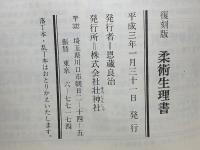 復刻版　柔術生理書
平成三年一月三十一日　発行
発行者＝恩蔵良治
発行所＝株式会社壮神社
〒332 埼玉県川口市朝日二-二十四-五
振替　東京　六-七七一七四
落丁本・乱丁本はおとりかえいたします。